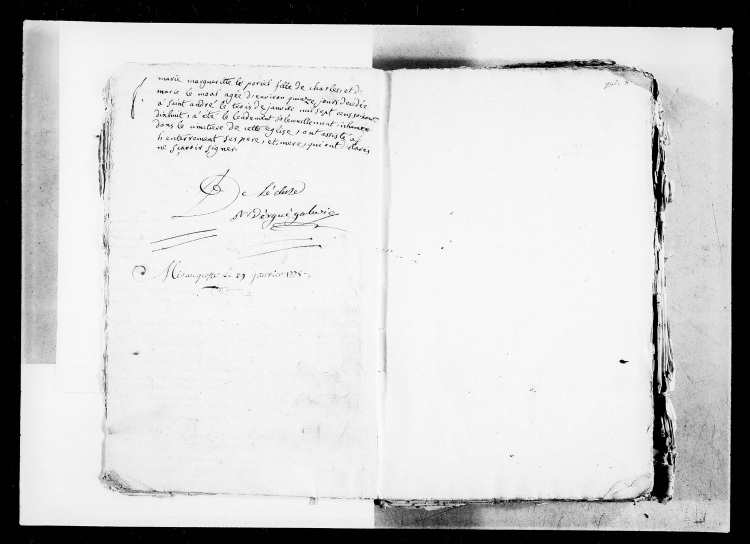 marie marguerite le poriel fille de charles, et de
marie le moal agée d'environ quinze jours décédée
à saint andré le trois de janvier mil sept cens soixante
dixhuit, a été le lendemain solemnellement inhumée
dans le cimetiere de cette eglise, ont assisté a
l'enterrement ses pere, et mere, qui ont déclarés
ne sçavoir signer
De Lécluse
Le 29 janvier 1778